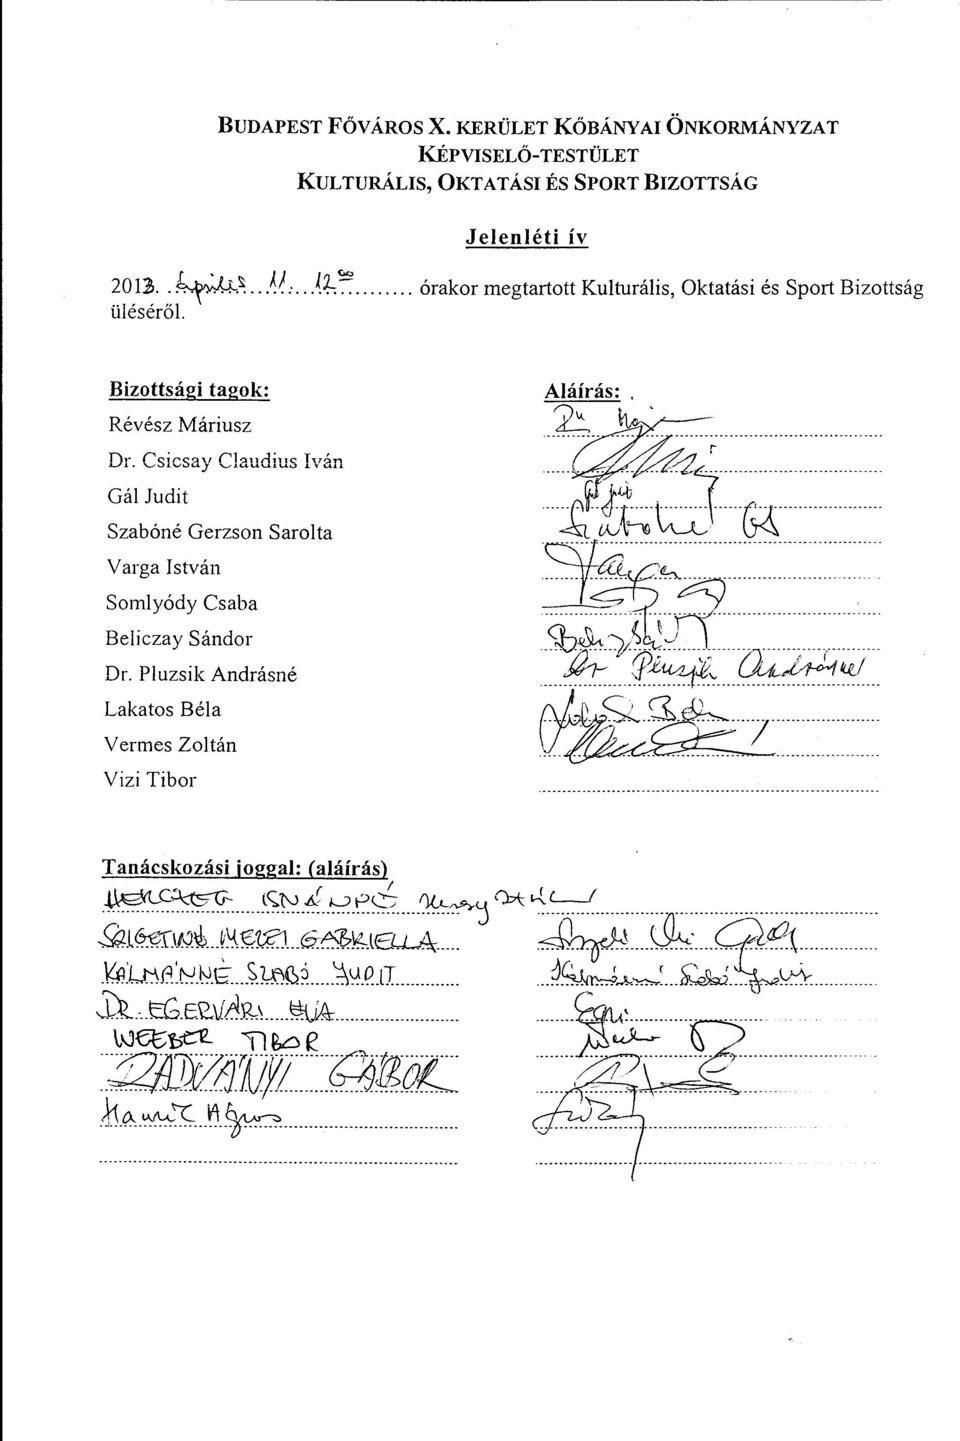 BUDAPEST FŐVÁROS X. KERÜLET KŐBÁNYAI ÖNKORMÁNYZAT
KÉPVISELŐ-TESTÜLET
KULTURÁLIS, OKTATÁSI ÉS SPORT BIZOTTSÁG
Jelenléti ív
2013. április 11. 12⁰⁰ órakor megtartott Kulturális, Oktatási és Sport Bizottság
üléséről.
Bizottsági tagok: Aláírás:
Révész Máriusz
Dr. Csicsay Claudius Iván
Gál Judit Gál Judit
Szabóné Gerzson Sarolta Szabóné GS
Varga István Varga
Somlyódy Csaba
Beliczay Sándor
Dr. Pluzsik Andrásné Dr Pluzsik Andrásné
Lakatos Béla
Vermes Zoltán
Vizi Tibor
Tanácskozási joggal: (aláírás)
HERCZEG
SZIGETINÉ MEZEI GABRIELLA
KÁLMÁNNÉ SZABÓ JUDIT Kálmánné Szabó Judit
DR. EGERVÁRI ÉVA
WEEBER TIBOR
RADVÁNYI GÁBOR